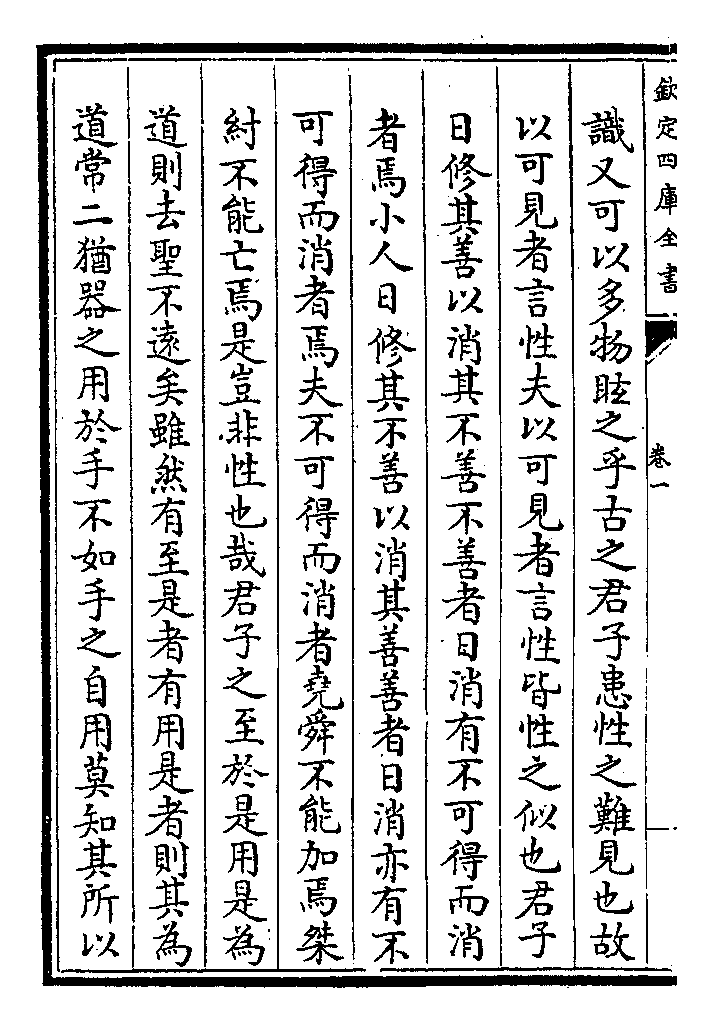 欽定四庫全書
卷一
識又可以多物眩之乎古之君子患性之難見也故
以可見者言性夫以可見者言性皆性之似也君子
日修其善以消其不善不善者日消有不可得而消
者焉小人日修其不善以消其善善者日消亦有不
可得而消者焉夫不可得而消者堯舜不能加焉桀
紂不能亡焉是豈非性也哉君子之至於是用是為
道則去聖不遠矣雖然有至是者有用是者則其為
道常二猶器之用於手不如手之自用莫知其所以